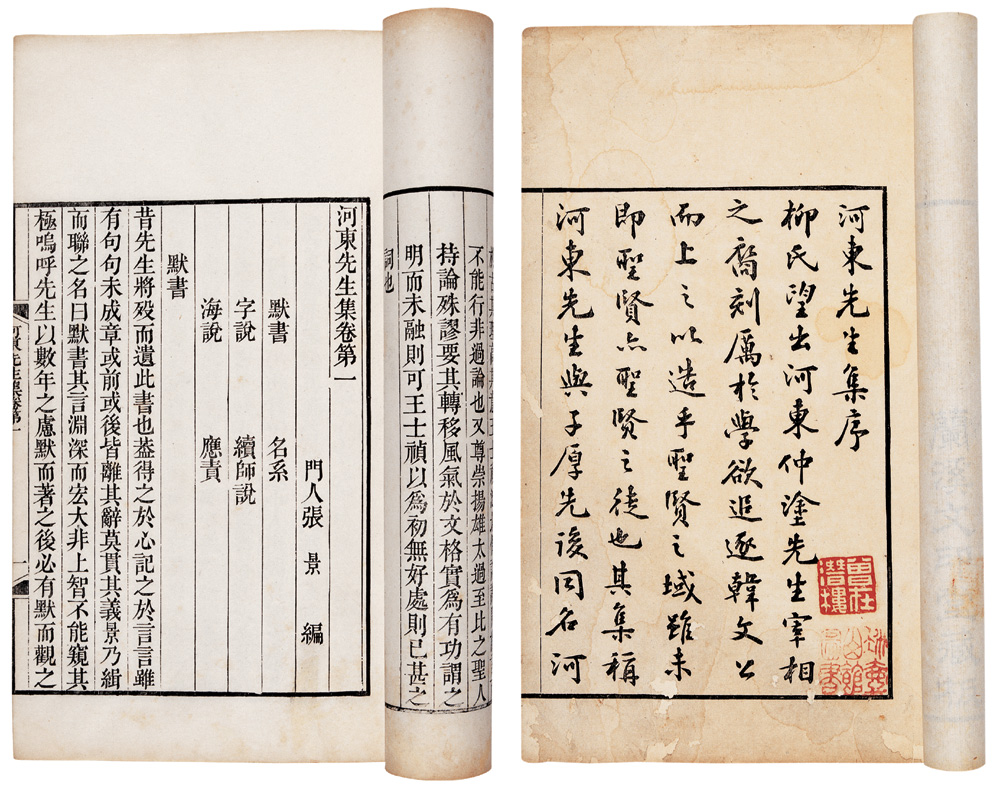 河東先生集序
柳氏望出河東仲塗先生宰相
之裔刻厲於學欲追逐韓文公
而上之以造乎聖賢之域雖未
即聖賢亦聖賢之徒也其集稱
河東先生與子厚先後同名河
曾在
潛樓
不能行非過論也又尊崇揚雄太過至比之聖人
持論殊謬要其轉移風氣於文格實爲有功謂之
明而未融則可王士禎以爲初無好處則已甚之
詞也
河東先生集卷第一
門人張景編
默書 名系
字說 續師說
海說 應責
默書
昔先生將歿而遺此書也葢得之於心記之於言言雖
有句句未成章或前或後皆離其辭莫貫其義景乃緝
而聯之名曰默書其言淵深而宏大非上智不能窺其
極嗚呼先生以數年之慮默而著之後必有默而觀之
河東先生集卷第一
一